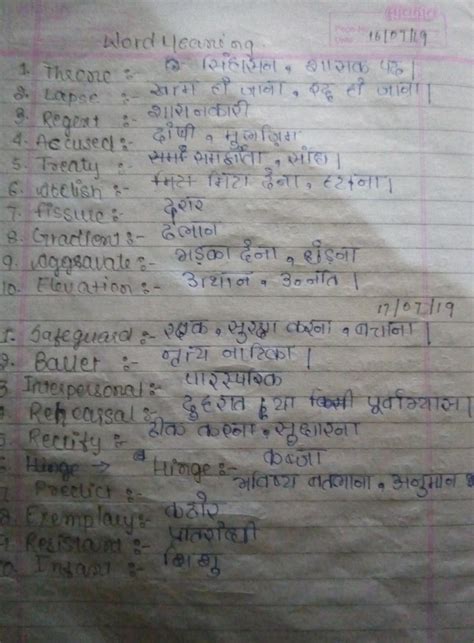 Page No.
Date 16/07/19
Word Meaning
1. Throne :- सिंहासन, शासक पद।
2. Lapse :- खत्म हो जाना, रद्द हो जाना।
3. Regent :- शासनकारी
4. Accused :- दोषी, मुलजिम
5. Treaty :- समझौता, संधि।
6. Abolish :- मिटा देना, हटाना।
7. fissure :- दरार
8. Gradient :- ढलान
9. Aggravate :- भड़का देना, छेड़ना
10. Elevation :- उत्थान, उन्नति।
17/07/19
1. Safeguard :- रक्षक, सुरक्षा करना, बचाना।
2. Ballet :- नृत्य नाटिका।
3 Interpersonal :- पारस्परिक
4 Rehearsal :- दुहराव, या किसी पूर्वाभ्यास।
5. Rectify :- ठीक करना, सुधारना
6 Hinge → Hinge :- कब्जा
7 Predict :- भविष्य बतलाना, अनुमान
8. Exemplary :- कठोर
9 Resistant :- प्रतिरोधी
10 Infant :- शिशु